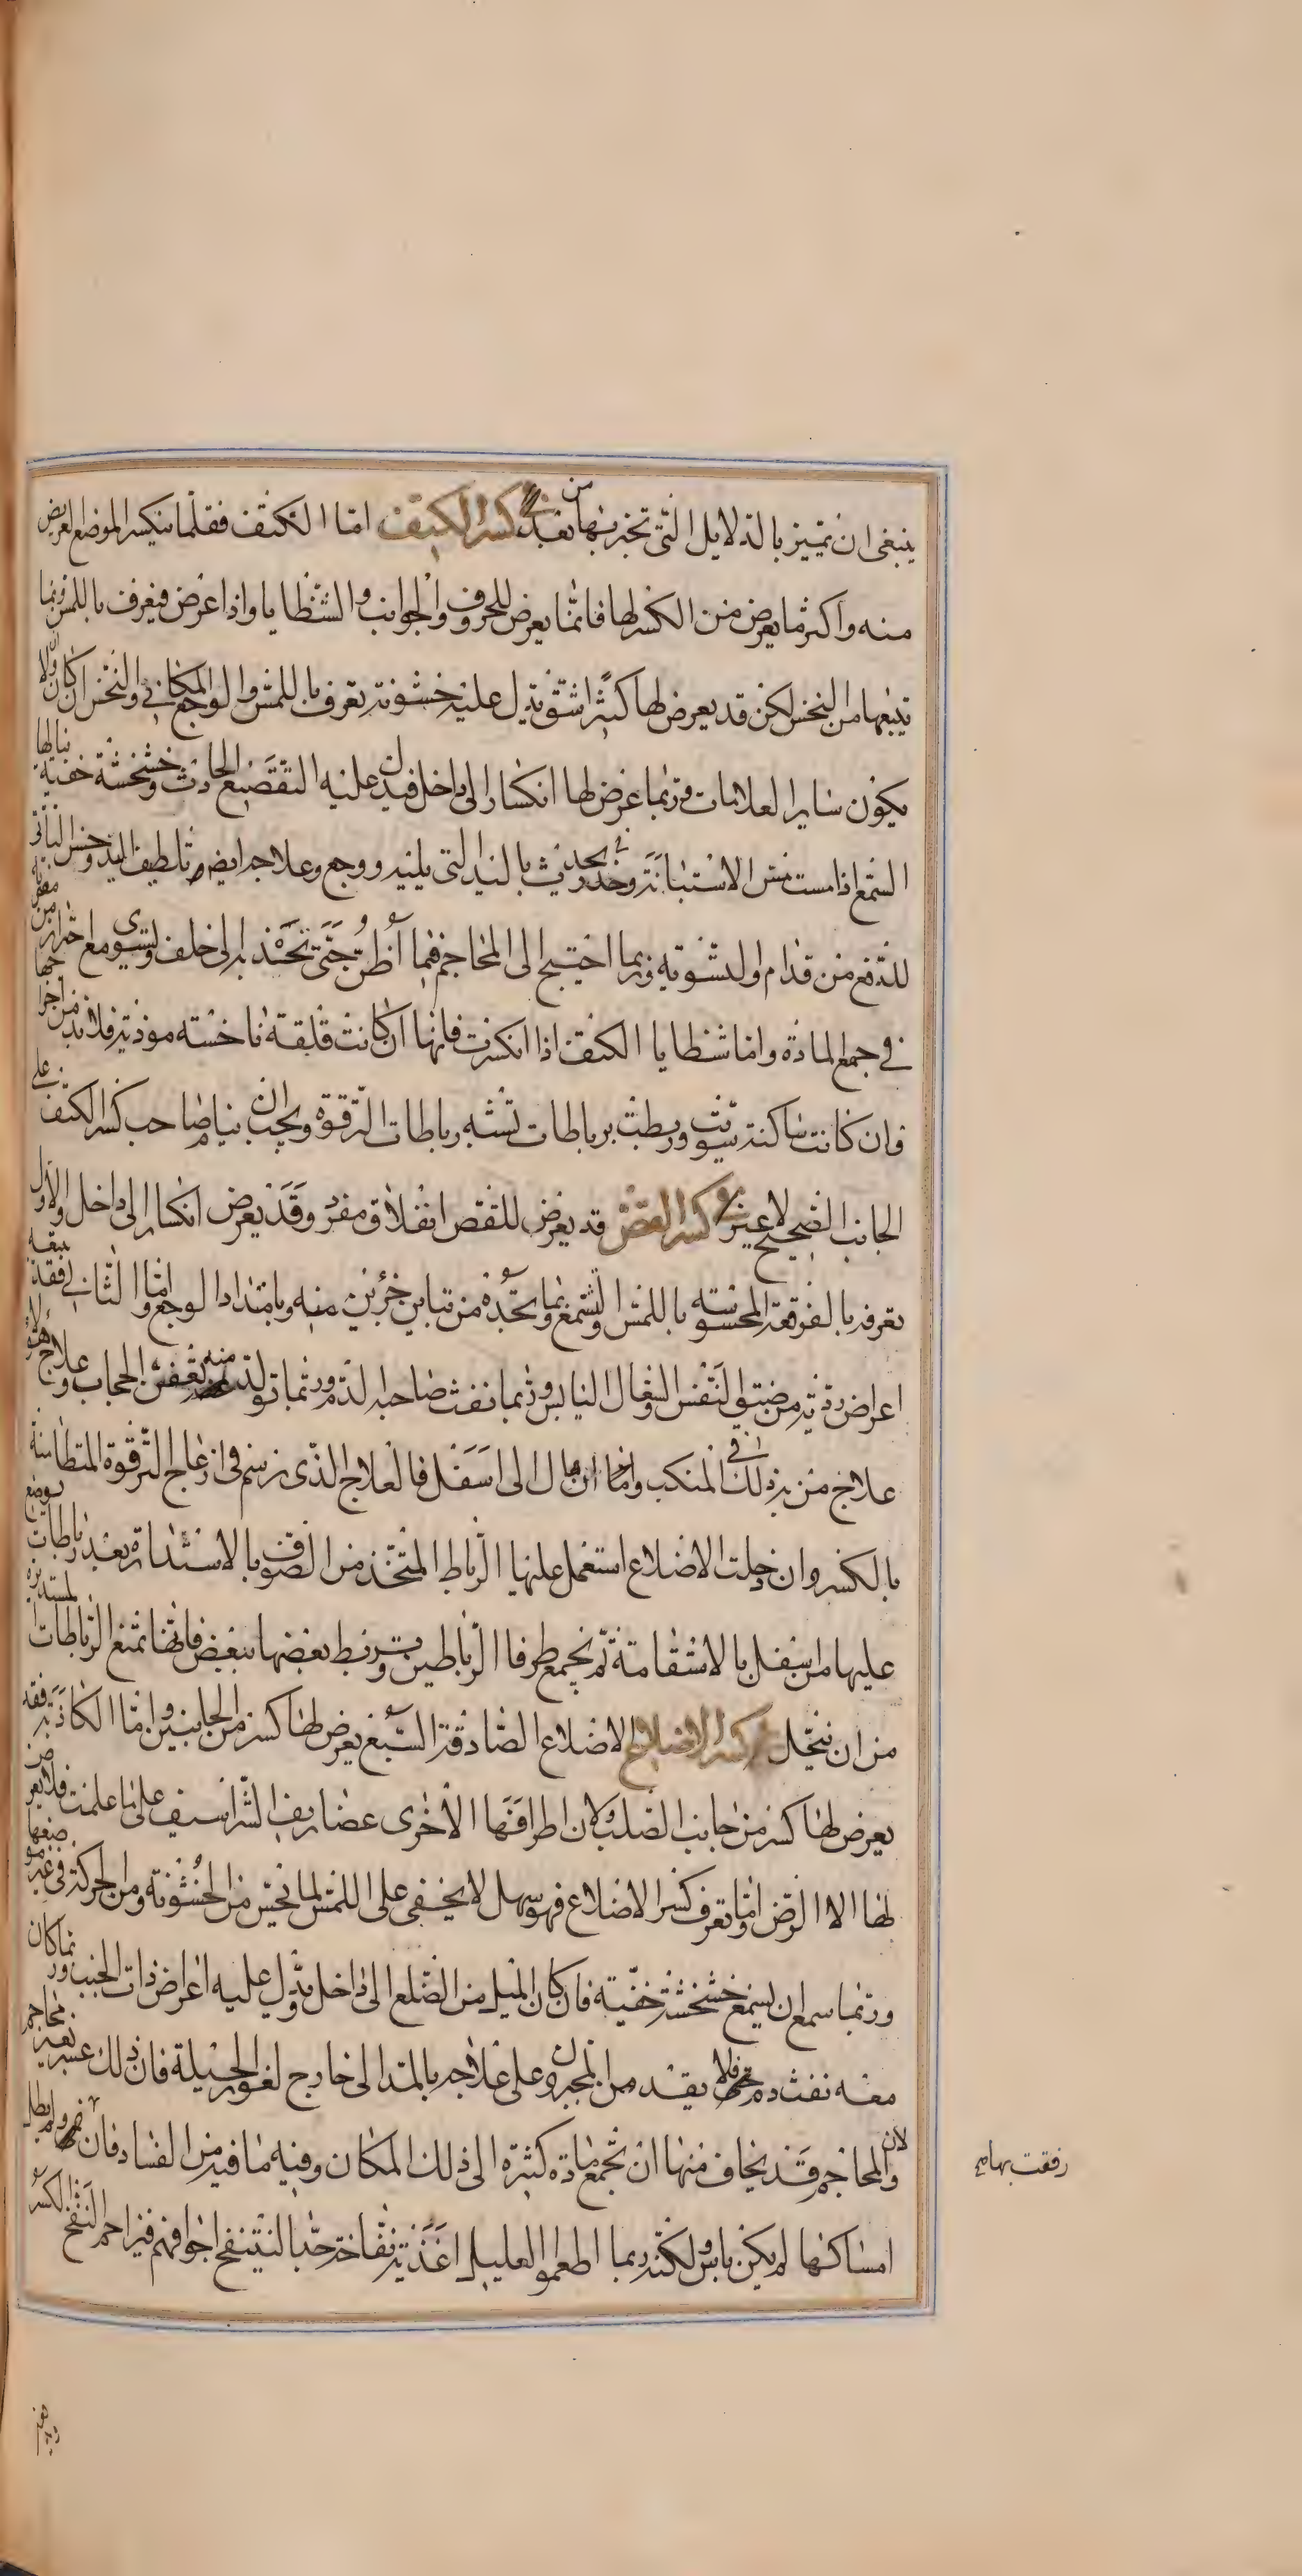 ينبغى ان تميز بالدلايل التى تخبر بها من بعد كسر الكتف اما الكتف فقلما ينكسر الموضع العريض
منه واكثر ما يعرض من الكسر لها فانما يعرض للحروف والجوانب والشظايا واذا عرض فيعرف باللمس وبما
يتبعها من النخس لكن قد يعرض لها كثيرا شق يدل عليه خشونة تعرف باللمس والوجع المكانى والنخس ان كان ولا
يكون ساير العلامات وربما عرض لها انكسار الى داخل فيدل عليه التقصيع الحادث وخشخشة خفية ينالها
السمع اذا مست مس الاستبانة وخدر يحدث باليد التى يليه ووجع وعلاجه ايضا تلطيف اليد وحس الناتى
للدفع من قدام او لتسويه وربما احتيج الى المحاجم فيما اظن حتى تجذبه الى خلف ولتسوى مع احتراز من مضرته
فى جمع المادة واما شظايا الكتف اذا انكسرت فانها ان كانت قلقة ناخسه موذية فلا بد من اخراجها
فان كانت ساكنة سويت وربطت برباطات تشبه رباطات الترقوة ويجب ان ينام صاحب كسر الكتف على
الجانب الصحيح لا غير كسر القص قد يعرض للقص انفلاق مفرد وقد يعرض انكسار الى داخل والاول
تعرفه بالفرقعة المحسوسه باللمس والسمع وبما تجده من تباين جزئين منه وبامتداد الوجع واما الثانى فقد يتبعه
اعراض ردية من ضيق النفس والسعال اليابس وربما نفث صاحبه الدم وربما تولد منه تعفن الحجاب وعلاج هؤلاء
علاج من به ذلك فى المنكب واما ان مال الى اسفل فالعلاج الذى نرسم فى ازعاج الترقوة المتطامنة
بالكسر وان دخلت الاضلاع استعمل عليها الرباط المتخذ من الصوف بالاستدارة بعد رباطات توضع
عليها من اسفل بالاستقامة ثم يجمع طرفا الرباطين وتربط بعضها ببعض فانها تمنع الرباطات المستديرة
من ان تنحل كسر الاضلاع الاضلاع الصادقة السبع يعرض لها كسر من الجانبين واما الكاذبة فقد
يعرض لها كسر من جانب الصلب ولان اطرافها الاخرى غضاريف الشراسيف على ما علمت فلا يعرض
لها الا الرض واما تعرف كسر الاضلاع فهو سهل لا يخفى على اللمس لما تحس من الخشونة ومن الحركة فى غير موضعها
وربما سمع ان يسمع خشخشة خفية فان كان الميل من الضلع الى داخل دل عليه اعراض ذات الجنب وربما كان
معه نفث دم فلا يقدمن المجبرون على علاجه بالمد الى خارج لغور الحيلة فان ذلك عسر بغير محاجم
والمحاجم قد يخاف منها ان تجمع مادة كثيرة الى ذلك المكان وفيه ما فيه من الفساد فان رفقت بها ولم يطل
امساكها لم يكن باس ولكنه ربما اطعموا العليل اغذية نفاخة جدا لتنتفخ اجوافهم فيزاحم النفخ الكسر
رفقت بها